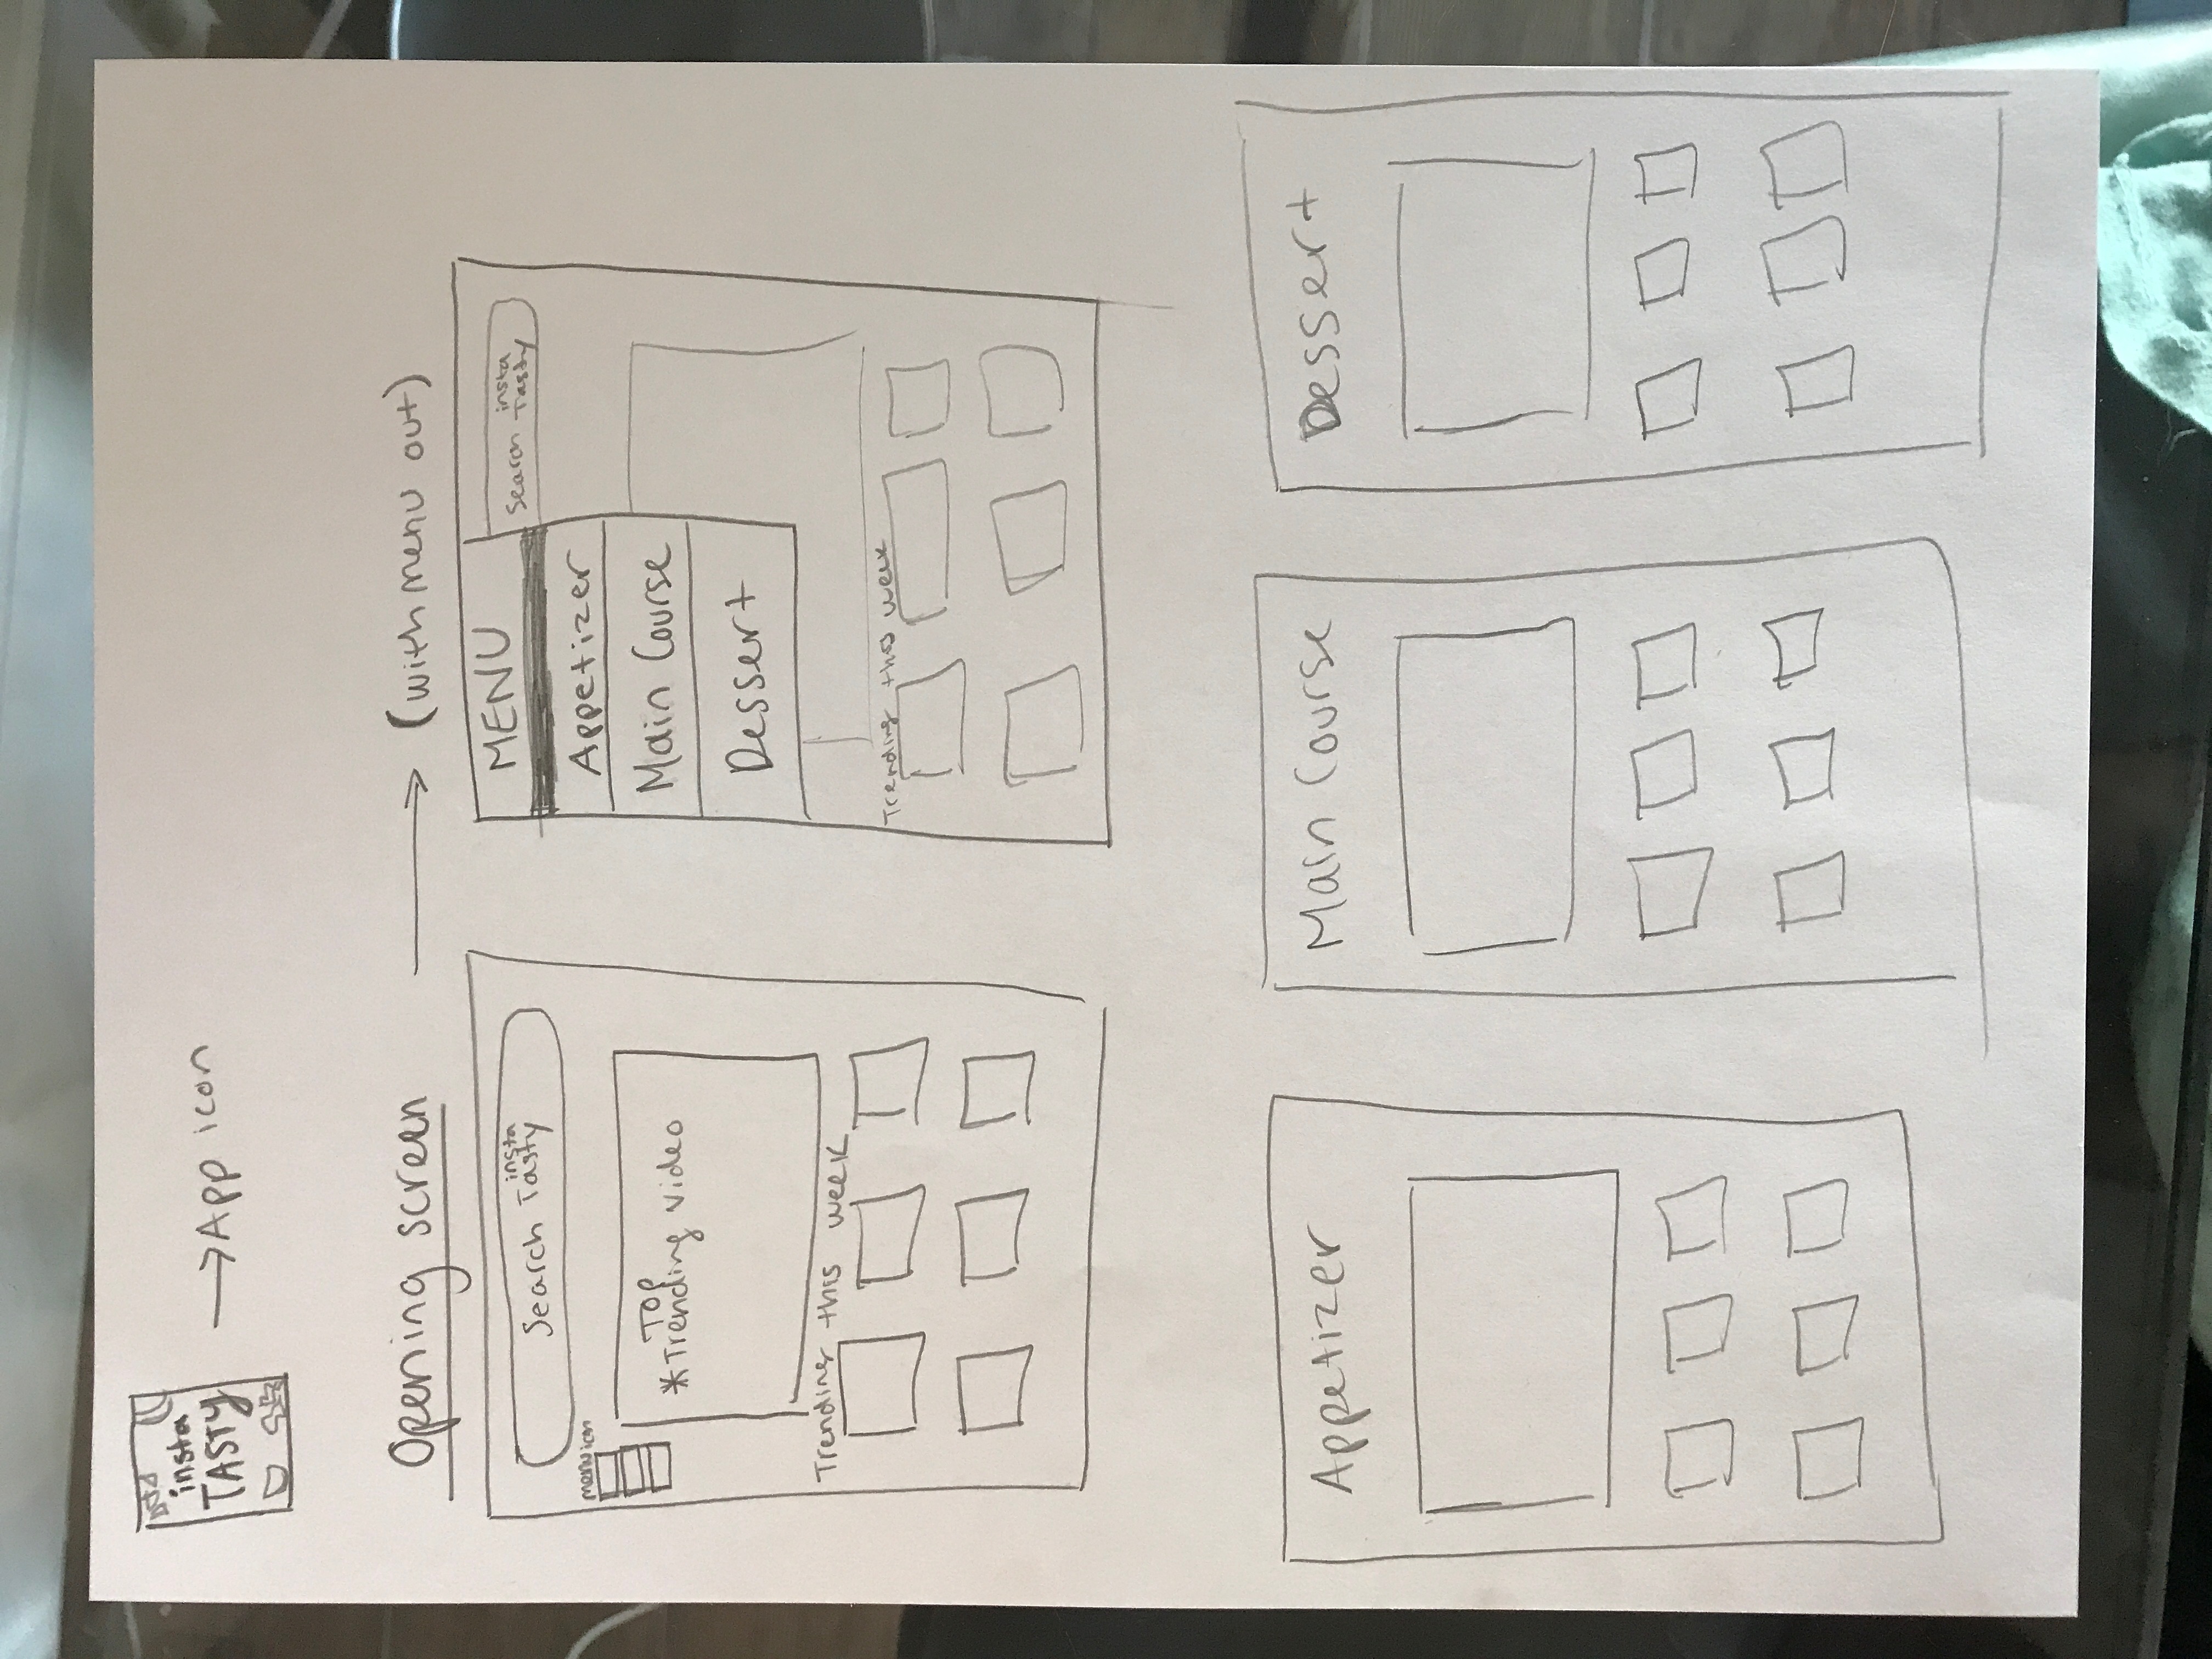 insta
TASTY
→ App icon
Opening screen → (with menu out)
Search insta Tasty
menu icon
TOP
*Trending video
Trending this week
MENU
Search insta Tasty
Appetizer
Main Course
Dessert
Trending this week
Appetizer
Main Course
Dessert